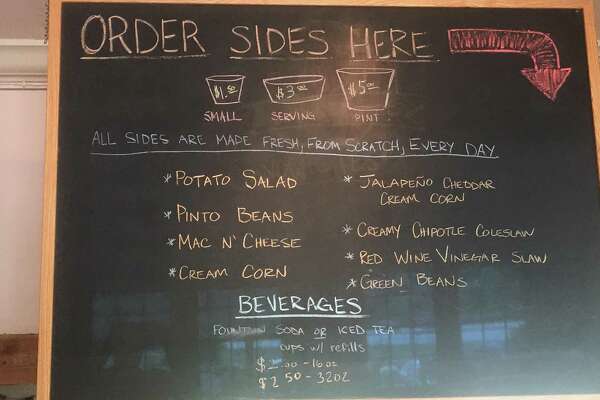 ORDER SIDES HERE
$1.00 $3.00 $5.00
SMALL SERVING PINT
ALL SIDES ARE MADE FRESH, FROM SCRATCH, EVERY DAY
*POTATO SALAD
*PINTO BEANS
*MAC N' CHEESE
*CREAM CORN
* JALAPEÑO CHEDDAR
CREAM CORN
* CREAMY CHIPOTLE COLESLAW
* RED WINE VINEGAR SLAW
*GREEN BEANS
BEVERAGES
FOUNTAIN SODA OR ICED TEA
cups w/ refills
$2.00 - 16oz
$2.50 - 32oz